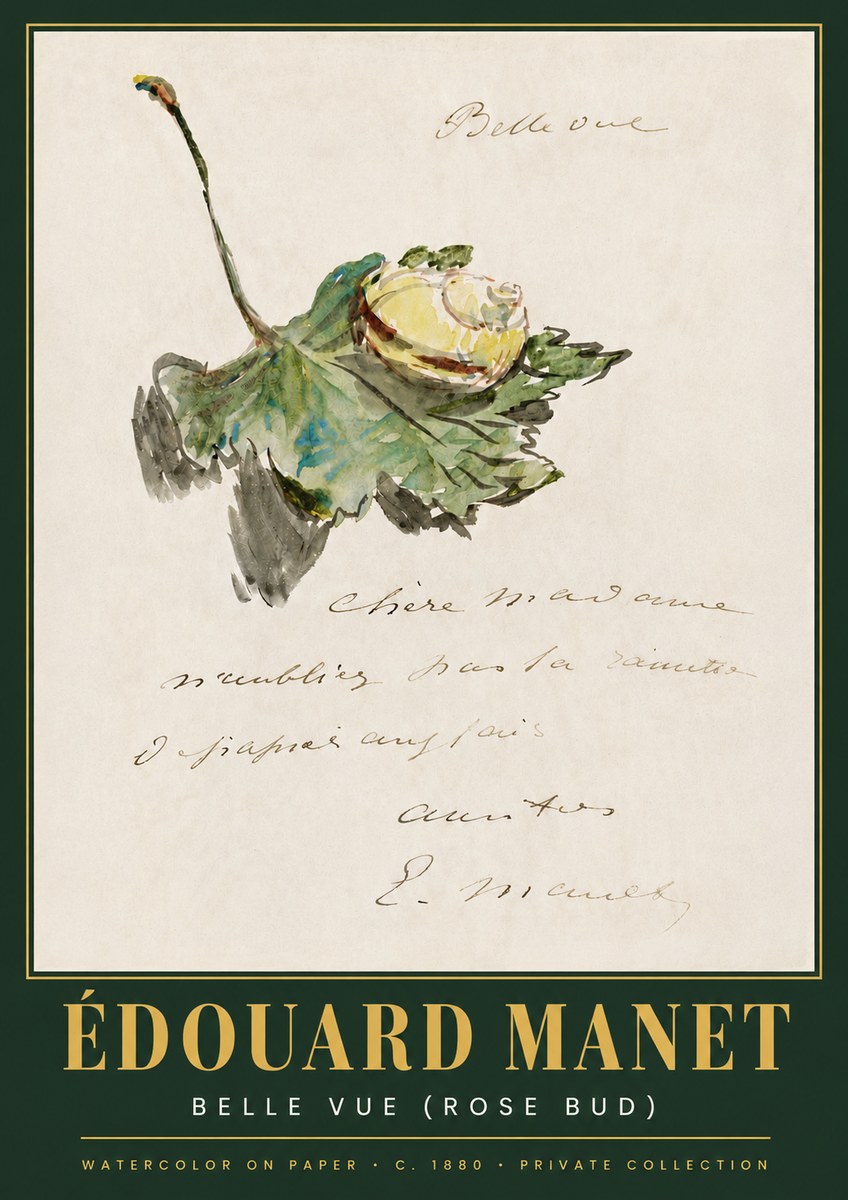 Bellevue
chère madame
n'oubliez pas la
anglais
E. Manet
ÉDOUARD MANET
BELLE VUE (ROSE BUD)
WATERCOLOR ON PAPER • C. 1880 • PRIVATE COLLECTION